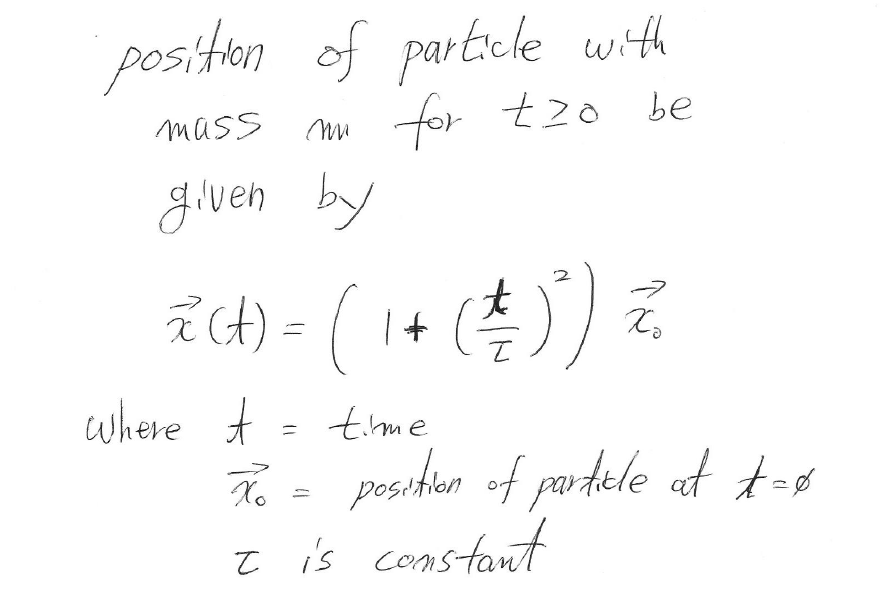 position of particle with
mass m for t ≥ 0 be
given by
x⃗(t) = (1 + (t/τ)²) x⃗₀
where t = time
x⃗₀ = position of particle at t = 0
τ is constant